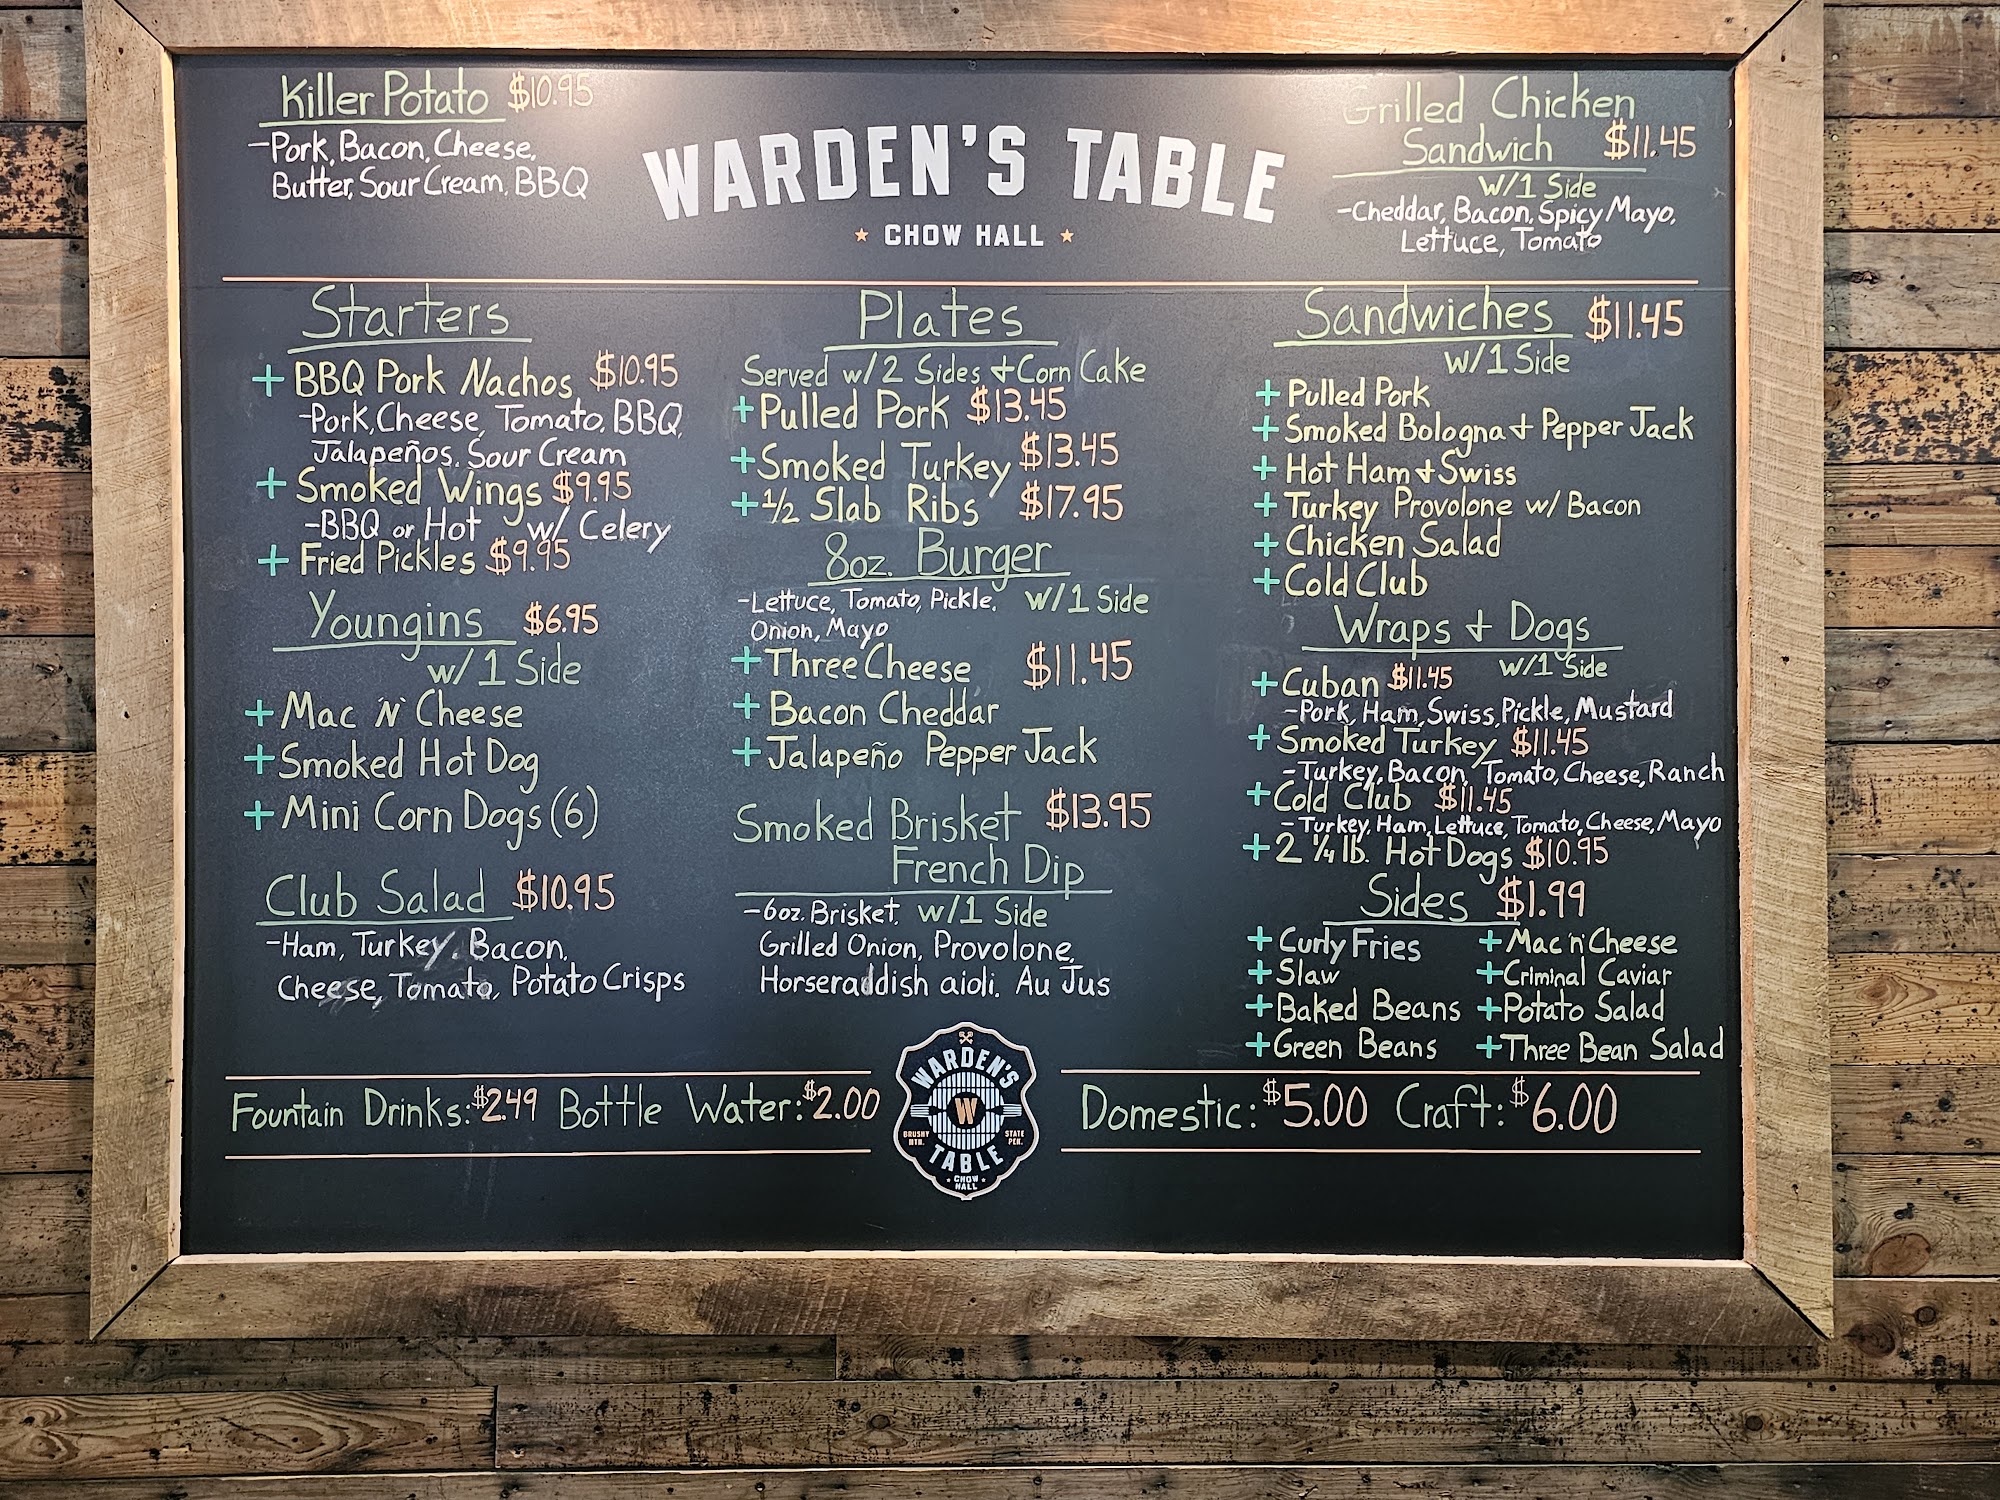 Killer Potato $10.95
-Pork, Bacon, Cheese,
Butter, Sour Cream, BBQ
WARDEN'S TABLE
CHOW HALL
Grilled Chicken
Sandwich $11.45
w/1 Side
-Cheddar, Bacon, Spicy Mayo,
Lettuce, Tomato
Starters
+ BBQ Pork Nachos $10.95
-Pork, Cheese, Tomato, BBQ,
Jalapeños, Sour Cream
+ Smoked Wings $9.95
-BBQ or Hot w/ Celery
+ Fried Pickles $9.95
Youngins $6.95
w/1 Side
+ Mac N' Cheese
+ Smoked Hot Dog
+ Mini Corn Dogs (6)
Club Salad $10.95
-Ham, Turkey, Bacon,
Cheese, Tomato, Potato Crisps
Plates
Served w/2 Sides + Corn Cake
+ Pulled Pork $13.45
+ Smoked Turkey $13.45
+ 1/2 Slab Ribs $17.95
8oz. Burger
-Lettuce, Tomato, Pickle, w/1 Side
Onion, Mayo
+ Three Cheese $11.45
+ Bacon Cheddar
+ Jalapeño Pepper Jack
Smoked Brisket $13.95
French Dip
-6oz. Brisket, w/1 Side
Grilled Onion, Provolone,
Horseraddish aioli, Au Jus
Sandwiches $11.45
w/1 Side
+ Pulled Pork
+ Smoked Bologna + Pepper Jack
+ Hot Ham + Swiss
+ Turkey Provolone w/ Bacon
+ Chicken Salad
+ Cold Club
Wraps + Dogs
w/1 Side
+ Cuban $11.45
-Pork, Ham, Swiss, Pickle, Mustard
+ Smoked Turkey $11.45
-Turkey, Bacon, Tomato, Cheese, Ranch
+ Cold Club $11.45
-Turkey, Ham, Lettuce, Tomato, Cheese, Mayo
+ 2 1/4 lb. Hot Dogs $10.95
Sides $1.99
+ Curly Fries + Mac 'n' Cheese
+ Slaw + Criminal Caviar
+ Baked Beans + Potato Salad
+ Green Beans + Three Bean Salad
Fountain Drinks: $2.49 Bottle Water: $2.00
WARDEN'S
W
BRUSHY MTN. STATE PEN.
TABLE
CHOW
HALL
Domestic: $5.00 Craft: $6.00